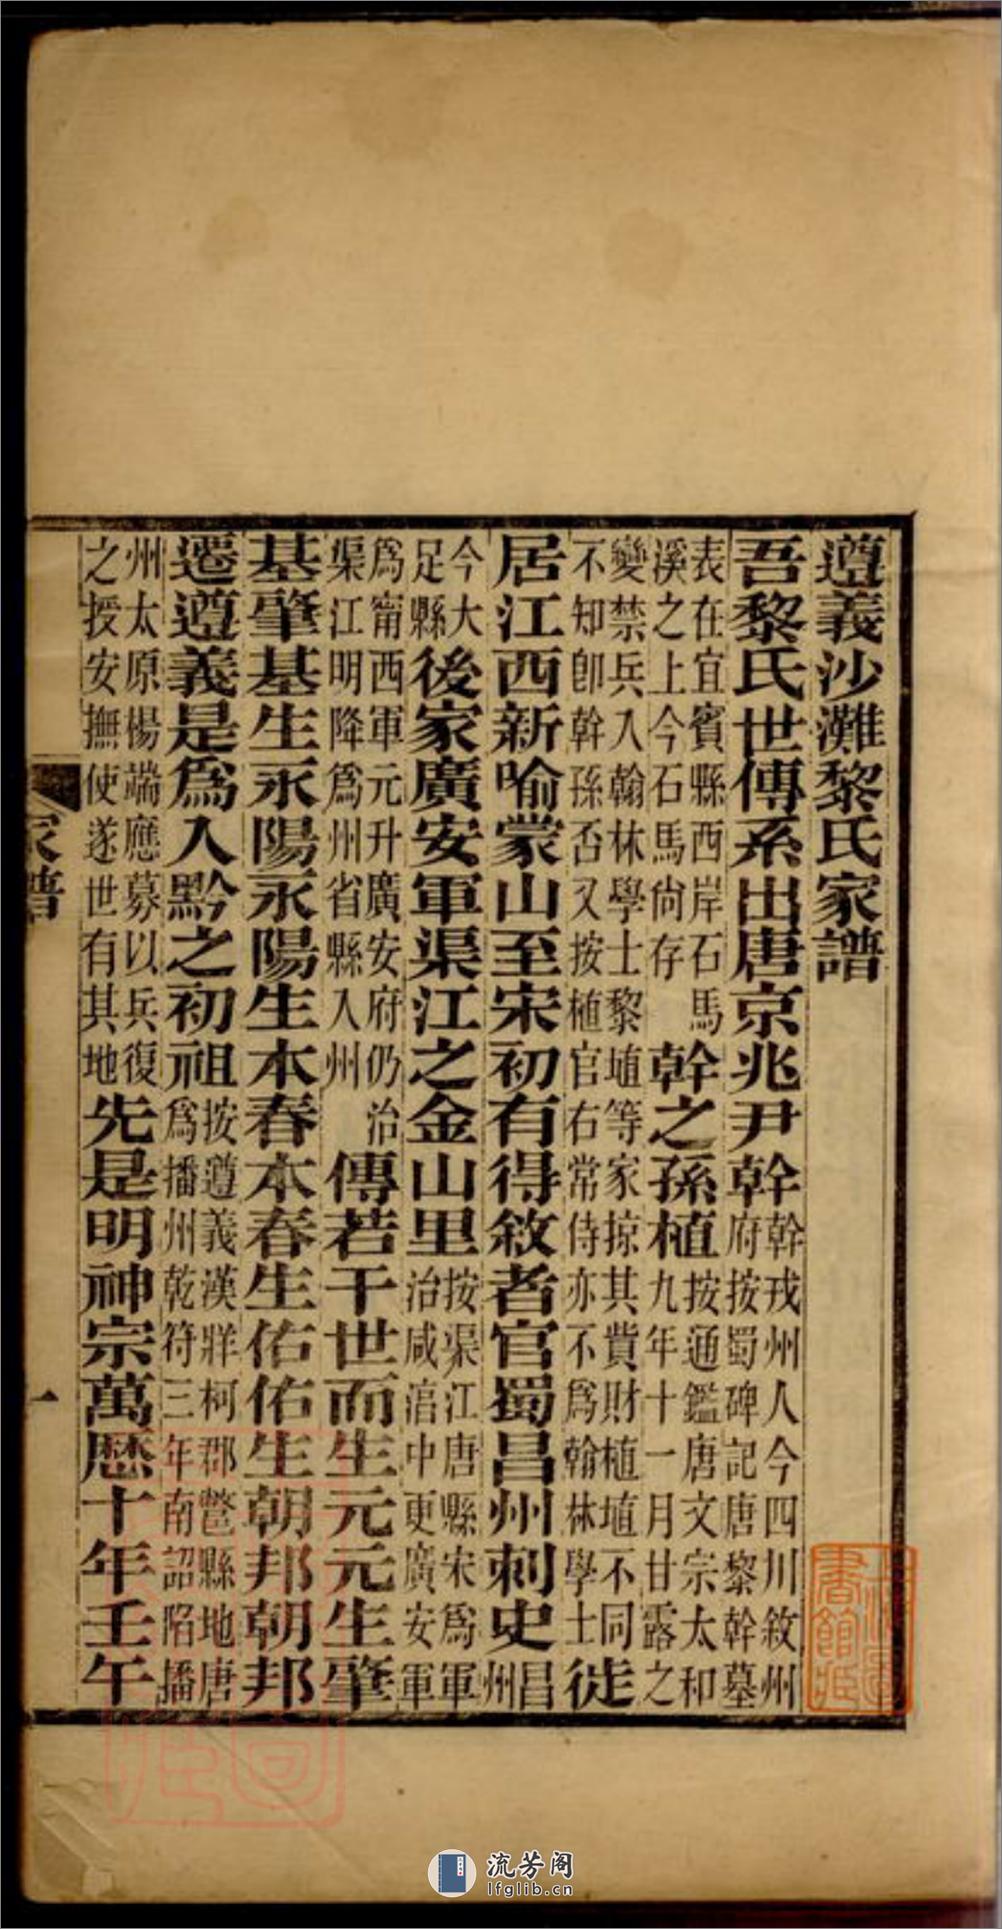 遵義沙灘黎氏家譜
吾黎氏世傳系出唐京兆尹幹幹戎州人今四川敘州府按蜀碑記唐黎幹墓
表在宜賓縣西岸石馬溪之上今石馬尙存幹之孫植按通鑑唐文宗太和九年十一月甘露之
變禁兵入翰林學士黎埴等家掠其貲財植埴不同不知卽幹孫否又按植官右常侍亦不爲翰林學士徙
居江西新喻蒙山至宋初有得敘者官蜀昌州刺史昌州
今大足縣後家廣安軍渠江之金山里按渠江唐縣宋爲軍治咸淳中更廣安軍
爲甯西軍元升廣安府仍治渠江明降爲州省縣入州傳若干世而生元元生肇
基肇基生永陽永陽生本春本春生佑佑生朝邦朝邦
遷遵義是爲入黔之初祖按遵義漢牂柯郡鄨縣地唐爲播州乾符三年南詔陷播
州太原楊端應募以兵復之授安撫使遂世有其地先是明神宗萬曆十年壬午
家譜
一
流芳阁
lfglib.cn